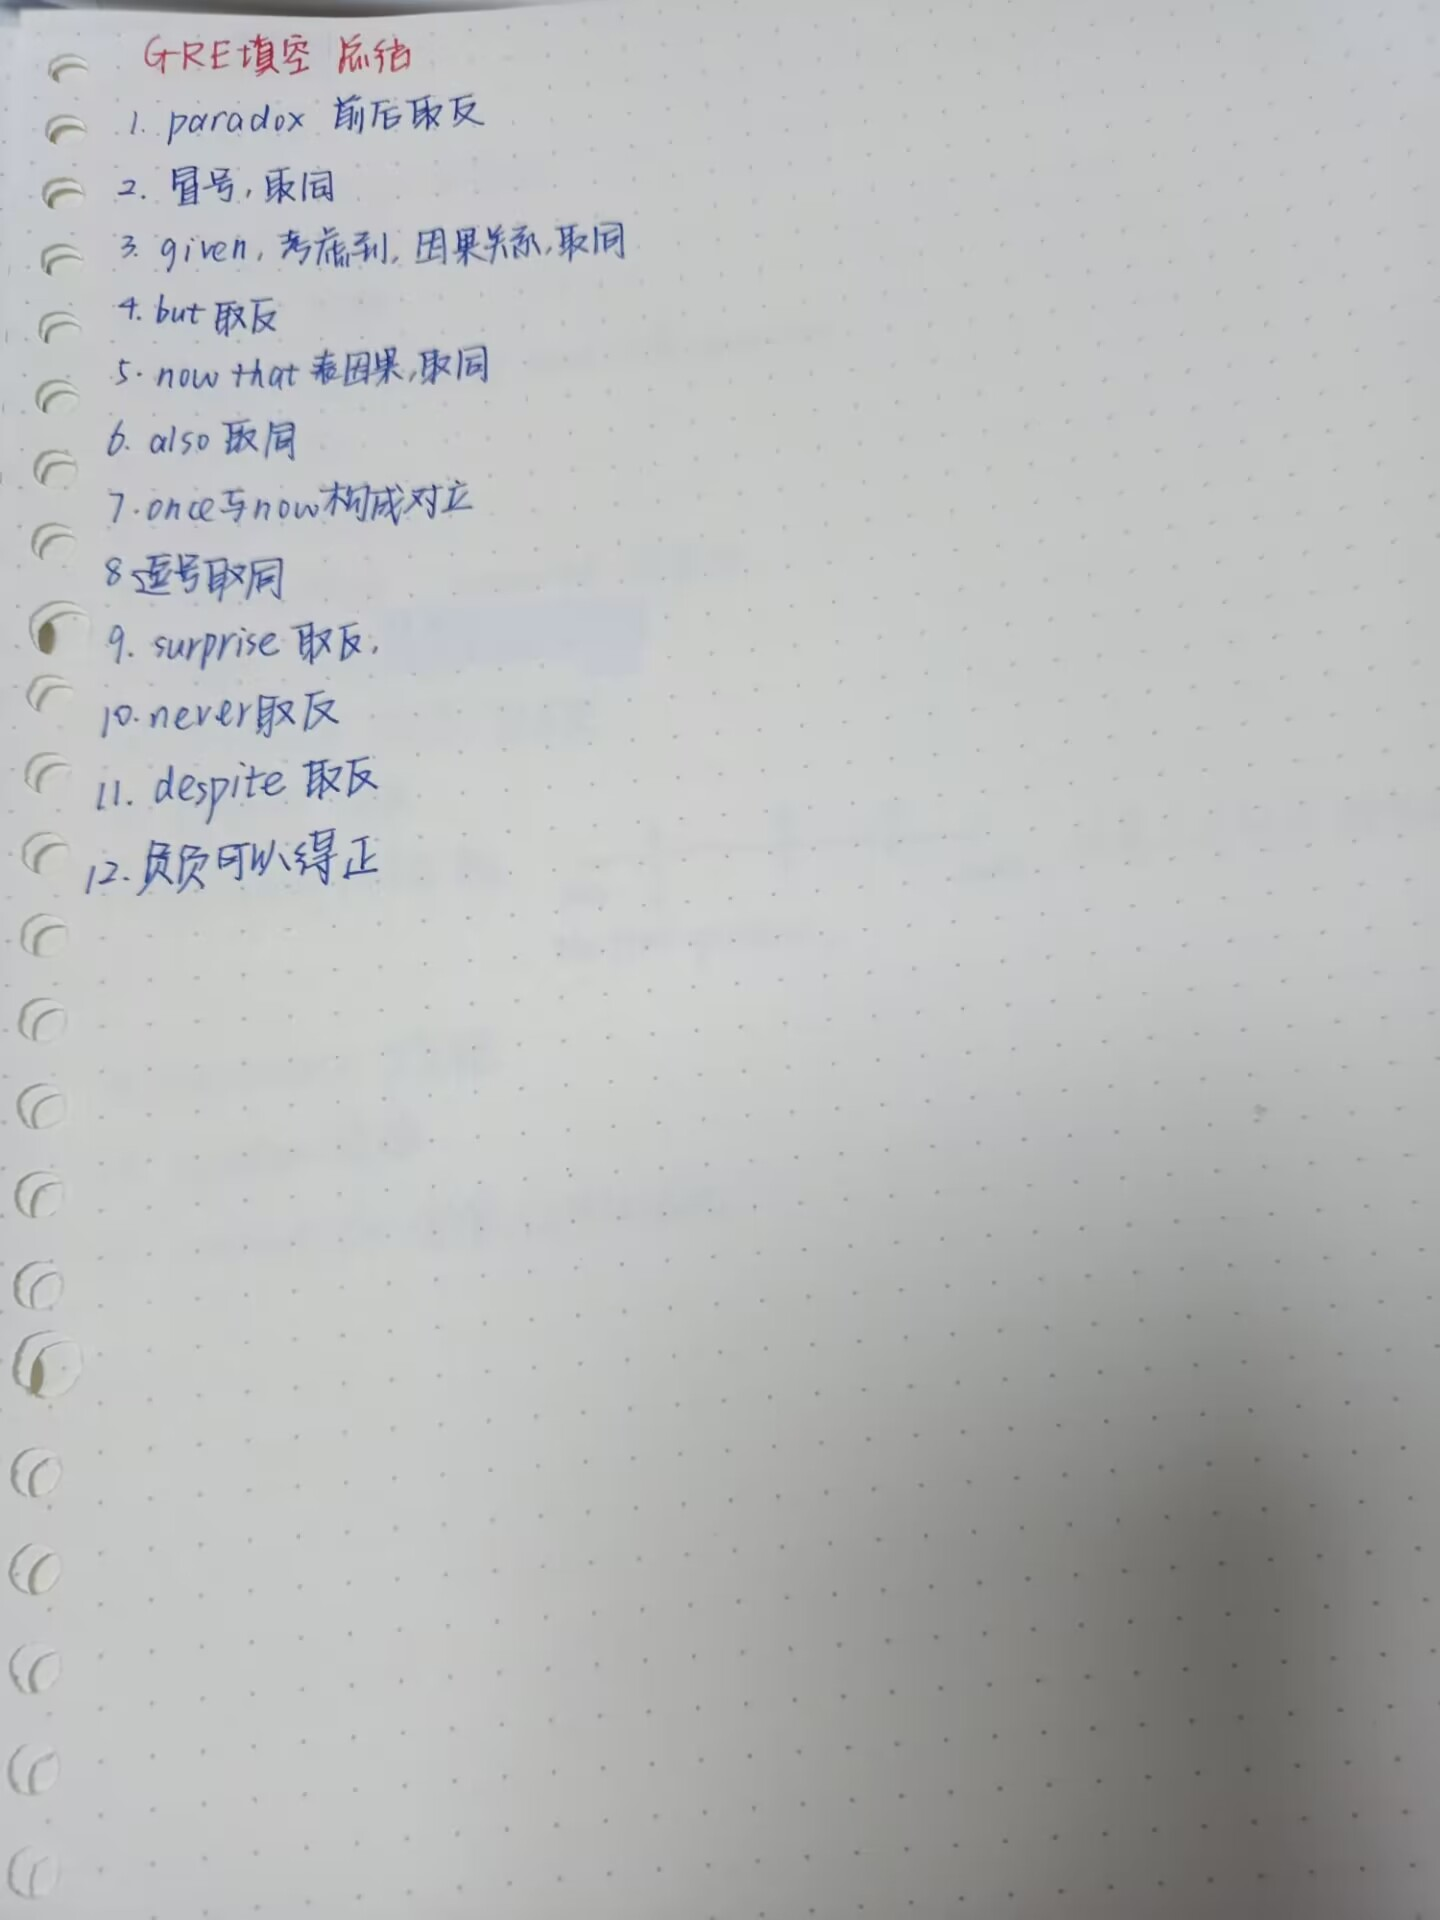 GRE填空 总结
1. paradox 前后取反
2. 冒号，取同
3. given，考虑到，因果关系，取同
4. but 取反
5. now that 表因果，取同
6. also 取同
7. once与now构成对立
8 逗号取同
9. surprise 取反，
10. never取反
11. despite 取反
12. 负负可以得正